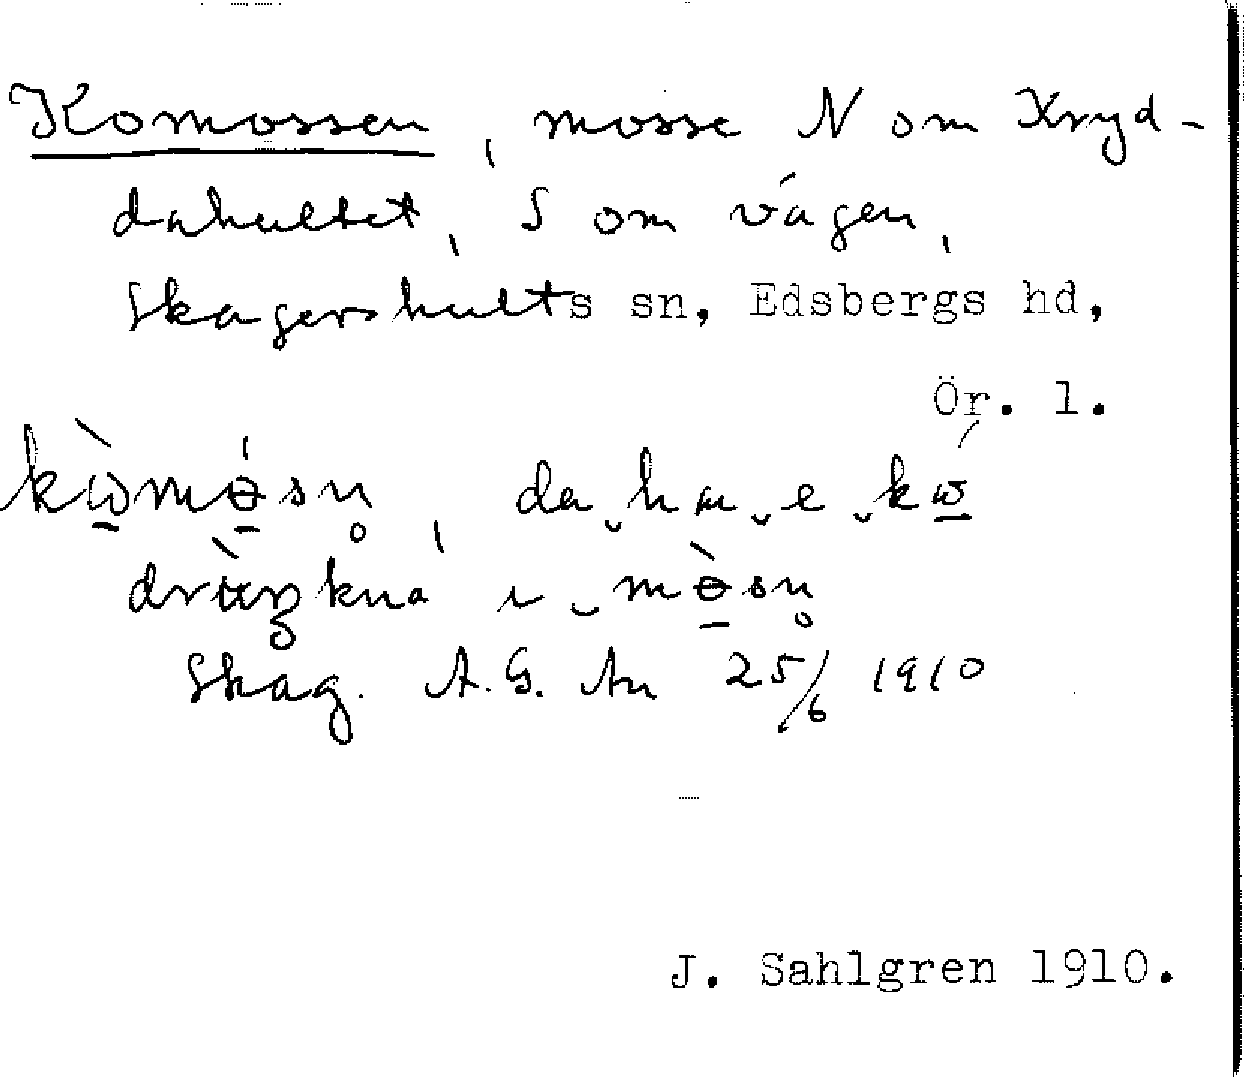 Komossen, mosse N om Kryd-
dahultet, S om vägen,
Skagershults sn, Edsbergs hd,
Ör. l.
kòmɵ́sn̥, da ha e kó
drùŋkna i mɵ̀sn̥
Skag. A.G. An 25/6 1910
J. Sahlgren 1910.